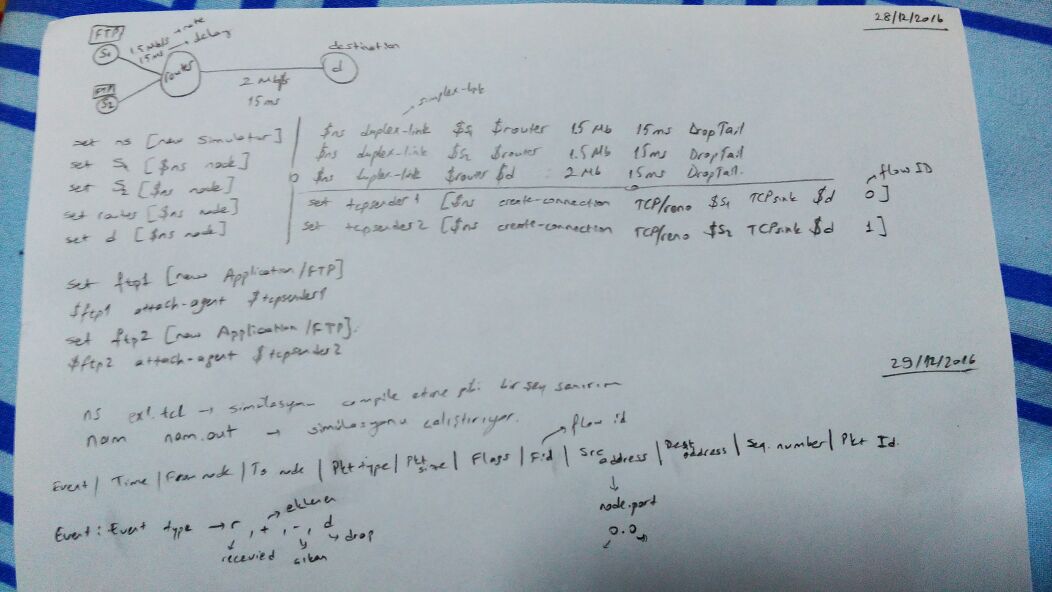 28/12/2016
FTP
S1
1.5 Mb/s → rate
15ms → delay
router
destination
d
FTP
S2
2 Mb/s
15 ms
simplex-link
set ns [new Simulator]
set S1 [$ns node]
set S2 [$ns node]
set router [$ns node]
set d [$ns node]
$ns duplex-link $S1 $router 1.5 Mb 15ms DropTail
$ns duplex-link $S2 $router 1.5 Mb 15ms DropTail
$ns duplex-link $router $d 2 Mb 15ms DropTail.
flow ID
set tcpsender1 [$ns create-connection TCP/reno $S1 TCPsink $d 0]
set tcpsender2 [$ns create-connection TCP/reno $S2 TCPsink $d 1]
set ftp1 [new Application/FTP]
$ftp1 attach-agent $tcpsender1
set ftp2 [new Application/FTP].
$ftp2 attach-agent $tcpsender2
29/12/2016
ns ex1.tcl → simülasyonu compile etme gibi bir şey sanırım
nam nam.out → simülasyonu çalıştırıyor.
flow id
Event | Time | From node | To node | Pkt type | Pkt size | Flags | Fid | Src address | Dest address | Seq. number | Pkt Id.
node.port
0.0
Event: Event type → r, +, -, d
eklenen
drop
recevied
çıkan